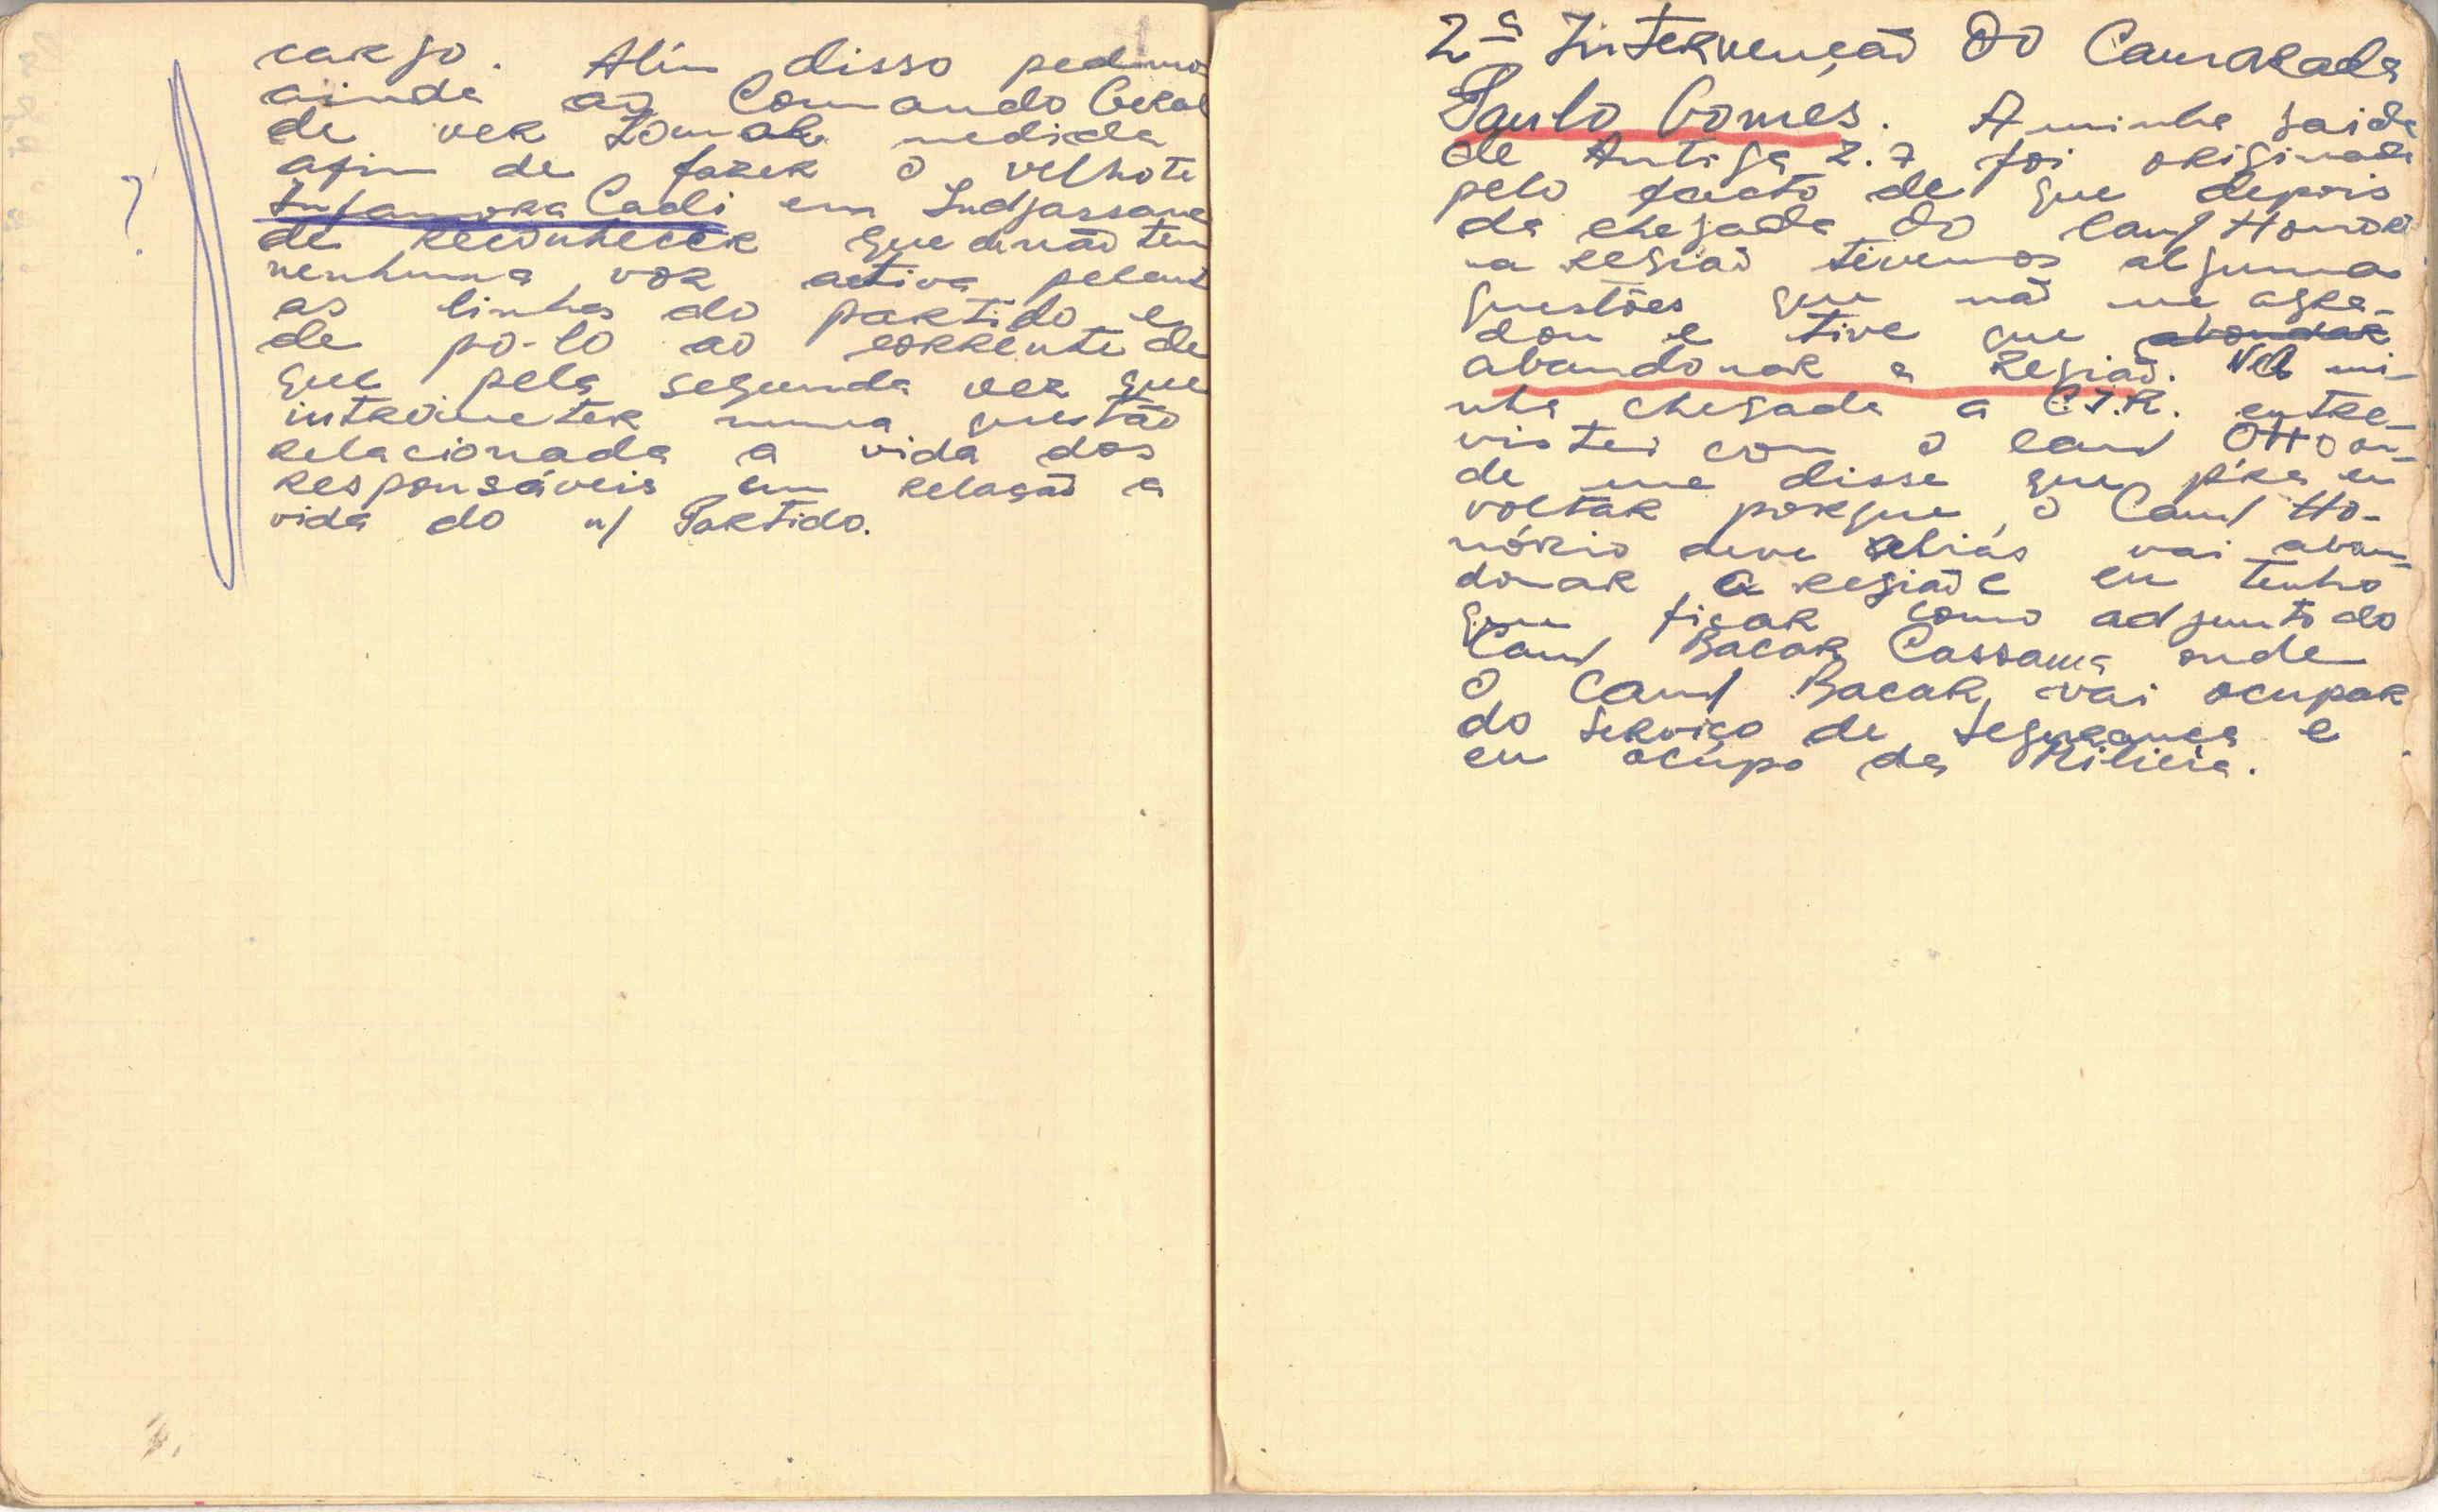 ?
cargo. Além disso pedimos
ainda ao Comando Geral
de ver tomar medida
afim de fazer o velhote
Infamora Cadi em Indjassane
de reconhecer que não tem
nenhuma voz activa pelant
as linhas do partido e
de pô-lo ao corrente de
que pela segunda vez que
intrometer numa questão
relacionada a vida dos
responsáveis em relação a
vida do n/ Partido.
2ª Intervenção do Camarada
Paulo Gomes. A minha saida
de Antiga Z.7 foi originada
pelo facto de que depois
da chegada do Cam/ Honório
na região tivemos algumas
questões que não me agra-
dou e tive que abondar
abandonar a região. Na mi-
nha chegada a C.I.R. entre-
vistei com o cam/ Otto on-
de me disse que p'ra eu
voltar porque o Cam/ Ho-
nório deve aliás vai aban-
donar a região e eu tenho
que ficar como adjunto do
Cam/ Bacar Cassamá onde
o Cam/ Bacar vai ocupar
do Serviço de Segurança e
eu ocupo da Milicia.